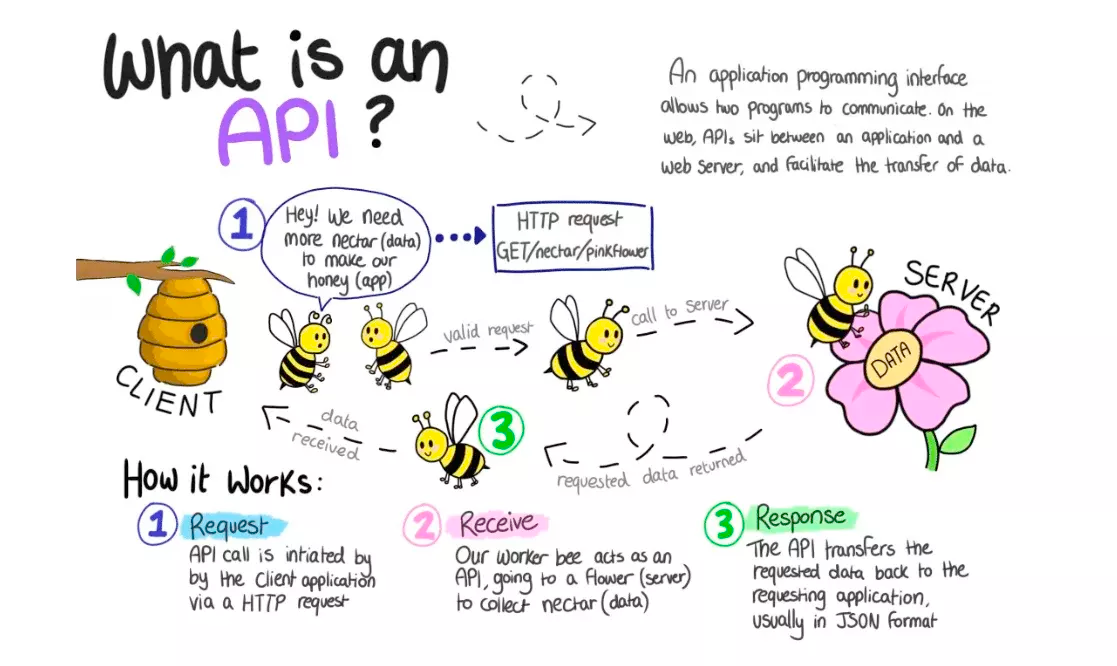 What is an
API?
An application programming interface
allows two programs to communicate. On the
web, APIs sit between an application and a
web server, and facilitate the transfer of data.
1
Hey! We need
more nectar (data)
to make our
honey (app)
HTTP request
GET/nectar/pinkflower
CLIENT
valid request
call to server
SERVER
DATA
2
3
data
received
requested data returned
How it works:
1 Request
API call is intiated by
by the client application
via a HTTP request
2 Receive
Our worker bee acts as an
API, going to a flower (server)
to collect nectar (data)
3 Response
The API transfers the
requested data back to the
requesting application,
usually in JSON format